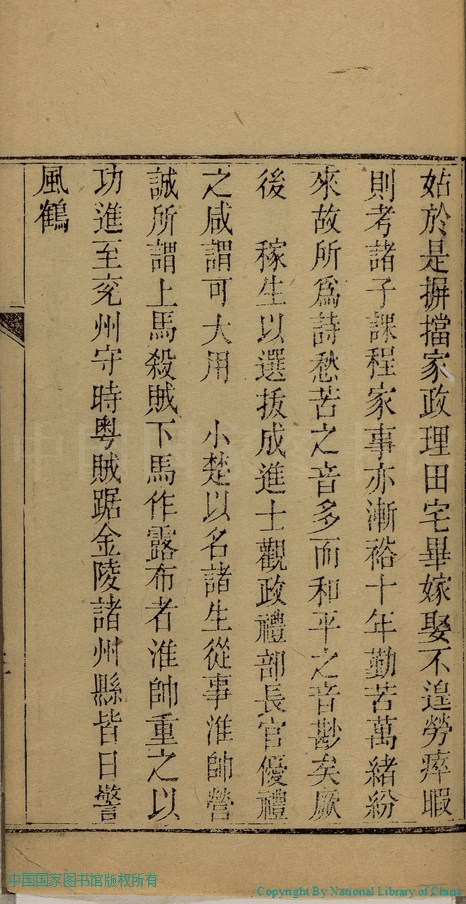 姑於是摒擋家政理田宅畢嫁娶不遑勞瘁暇
則考諸子課程家事亦漸裕十年勤苦萬緒紛
來故所為詩愁苦之音多而和平之音尠矣厥
後　稼生以選拔成進士觀政禮部長官優禮
之咸謂可大用　小楚以名諸生從事淮帥營
誠所謂上馬殺賊下馬作露布者淮帥重之以
功進至兖州守時粵賊踞金陵諸州縣皆日警
風鶴
中国国家图书馆版权所有
Copyright By National Library of China